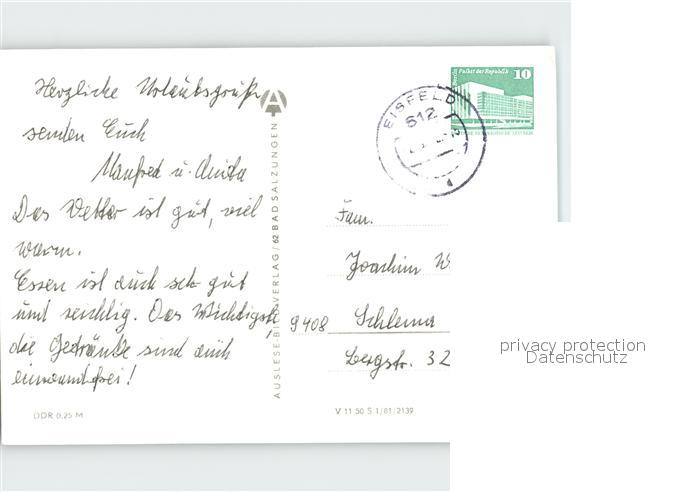 Herzliche Urlaubsgrüße
senden Euch
Manfred u. Anita
Das Wetter ist gut, viel
warm.
Essen ist auch sehr gut
und reichlig. Das Wichtigste,
die Getränke sind auch
einwandfrei!
DDR 0,25 M
AUSLESE-BILD-VERLAG/62 BAD SALZUNGEN
Berlin Palast der Republik 10
EISFELD
612
Fam.
Joachim W
9408 Schlema
Bergstr. 32
V 11 50 S 1/81/2139
privacy protection
Datenschutz